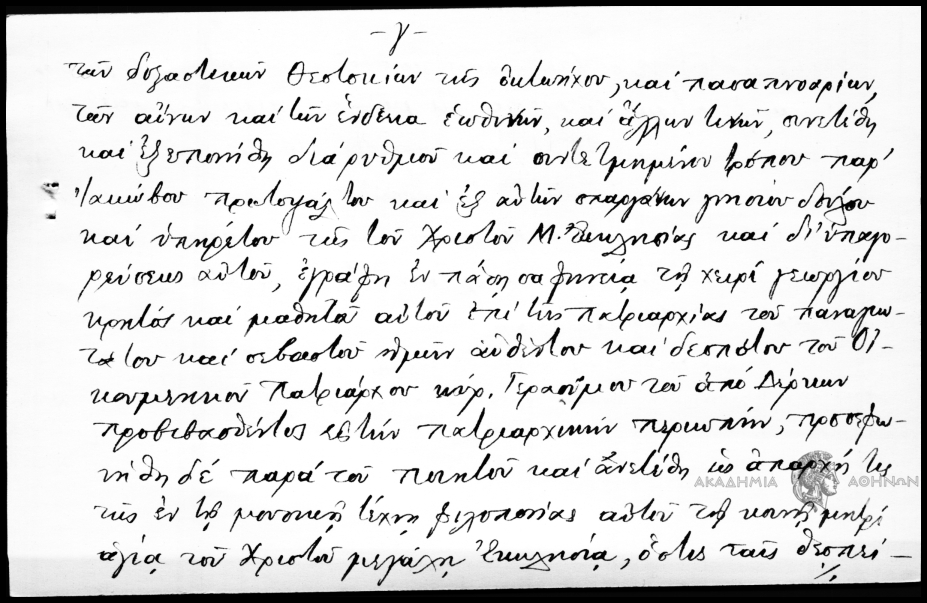 -γ-
τῶν δοξαστικῶν Θεοτοκίων τῆς ὀκτωήχου, καί πασαπνοαρίων,
τῶν αἴνων καί τῶν ἕνδεκα ἑωθινῶν, καί ἄλλων τινῶν, συνετέθη
καί ἐξεπονήθη διά ρυθμοῦ καί συντετμημένου τρόπου παρ'
Ἰακώβου πρωτοψάλτου καί ἐξ αὐτῶν σπαργάνων γνησίου δούλου
καί ὑπηρέτου τῆς τοῦ Χριστοῦ Μ. Ἐκκλησίας καί δι' ὑπαγο-
ρεύσεως αὐτοῦ, ἐγράφη ἐν πάσῃ σαφηνείᾳ τῇ χειρί γεωργίου
κρητός καί μαθητοῦ αὐτοῦ ἐπί τῆς πατριαρχίας τοῦ παναγιω-
τάτου καί σεβαστοῦ ἡμῶν αὐθέντου καί δεσπότου τοῦ Οἰ-
κουμενικοῦ Πατριάρχου κύρ. Γερασίμου τοῦ ἀπό Δέρκων
προβιβασθέντος εἰς τήν πατριαρχικήν περιωπήν, προσεφω-
νήθη δέ παρά τοῦ ποιητοῦ καί ἀνετέθη ὡς ἀπαρχή τις
τῆς ἐν τῇ μουσικῇ τέχνῃ φιλοπονίας αὐτοῦ τῇ κοινῇ μητρί
ἁγίᾳ τοῦ Χριστοῦ μεγάλῃ Ἐκκλησίᾳ, ὅστις ταῖς θεοπει-
./.
ΑΚΑΔΗΜΙΑ ΑΘΗΝΩΝ